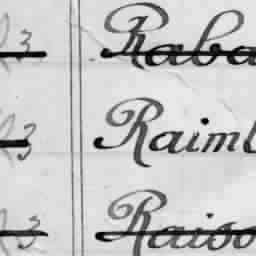 3 Raba
3 Raiml
3 Raiso